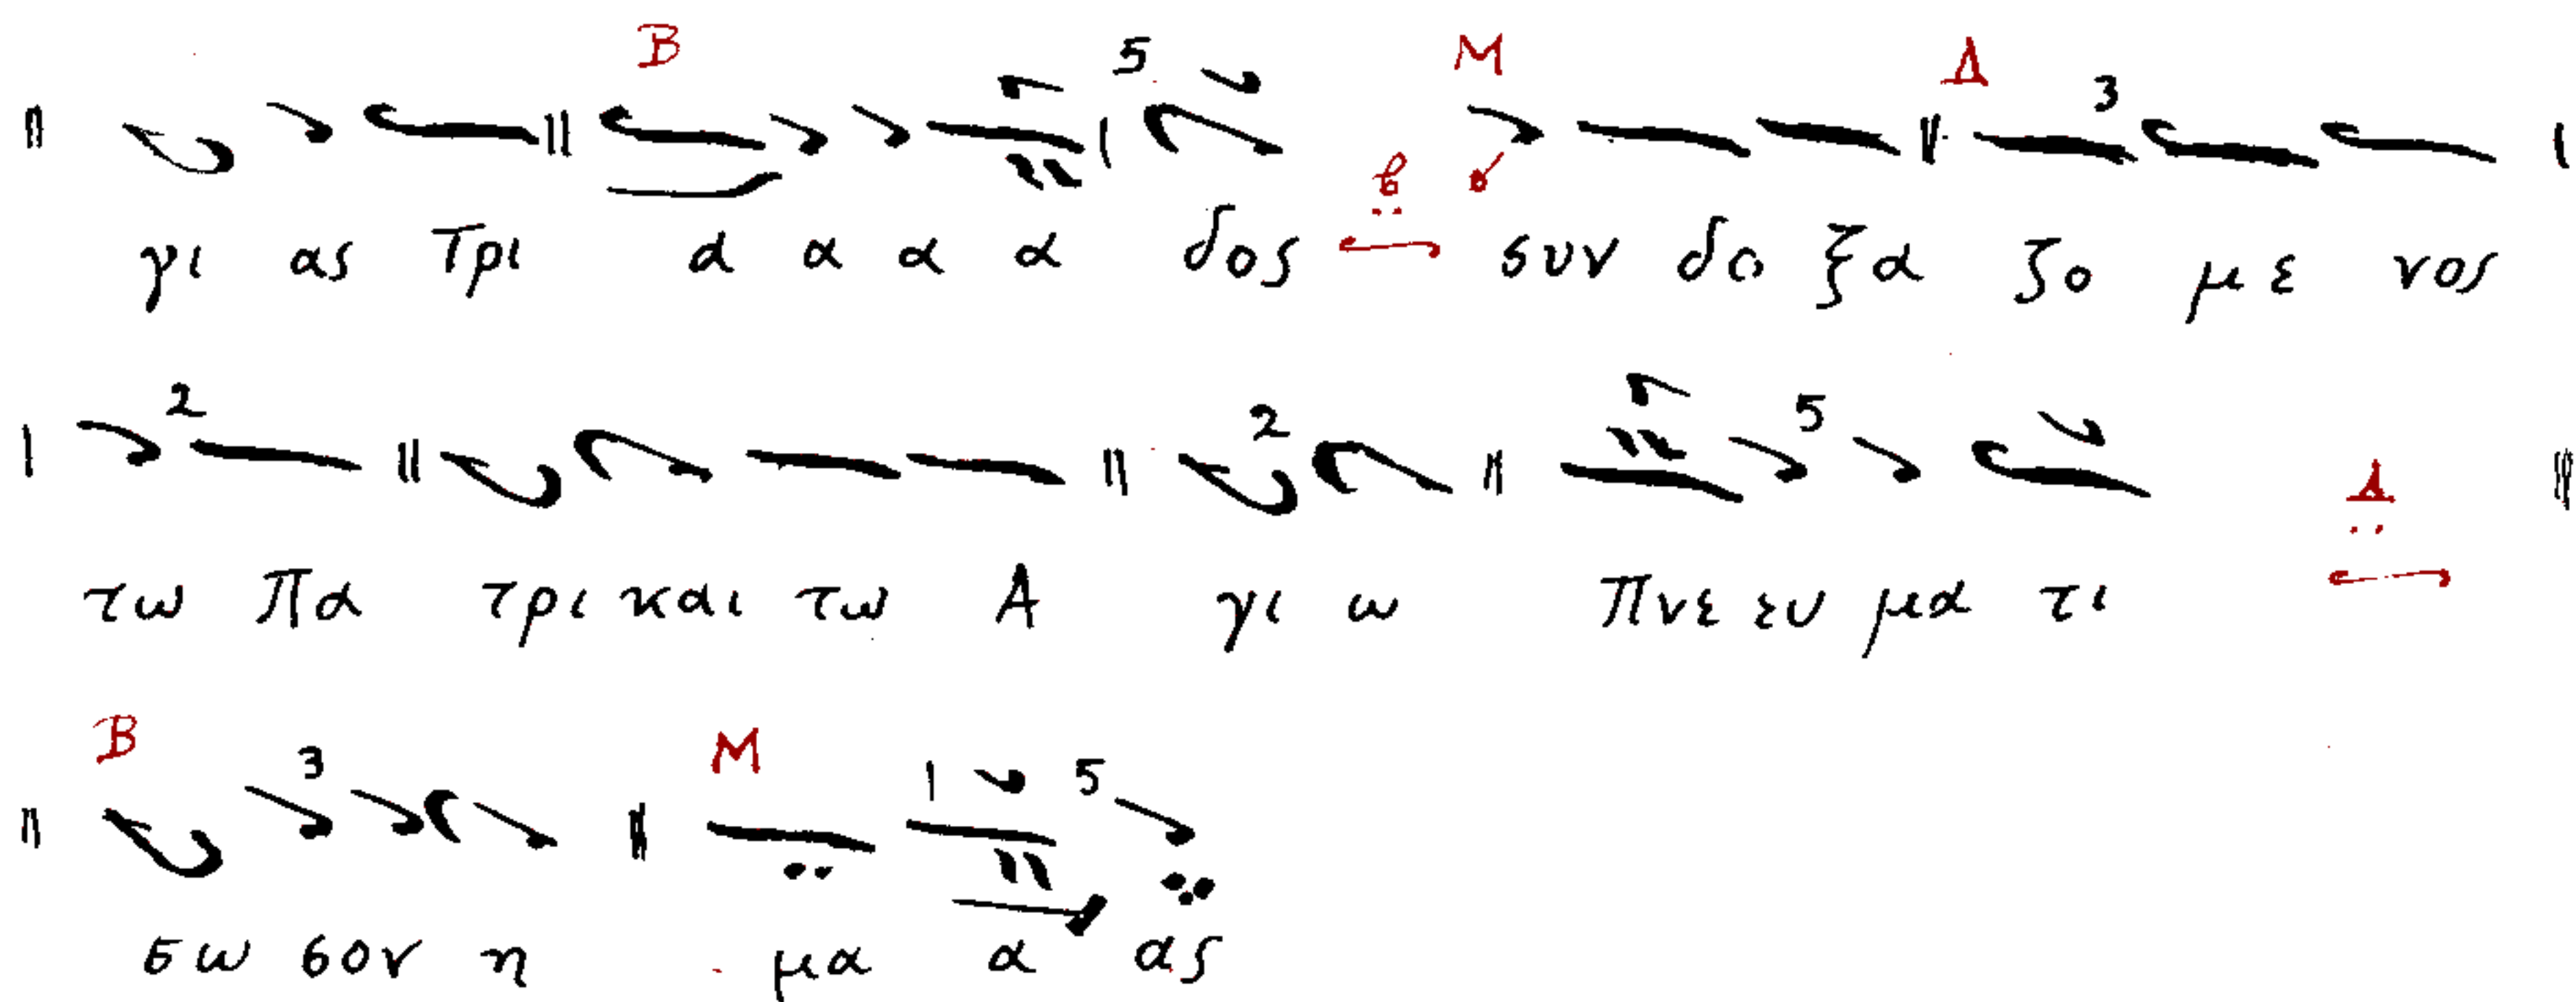 Β 5 Μ Δ 3
γι ας Τρι α α α α δος β συν δο ξα ζο με νος
2 2 5
τω Πα τρι και τω Α γι ω Πνε ευ μα τι Δ
Β 3 Μ 5
σω σον η μα α ας